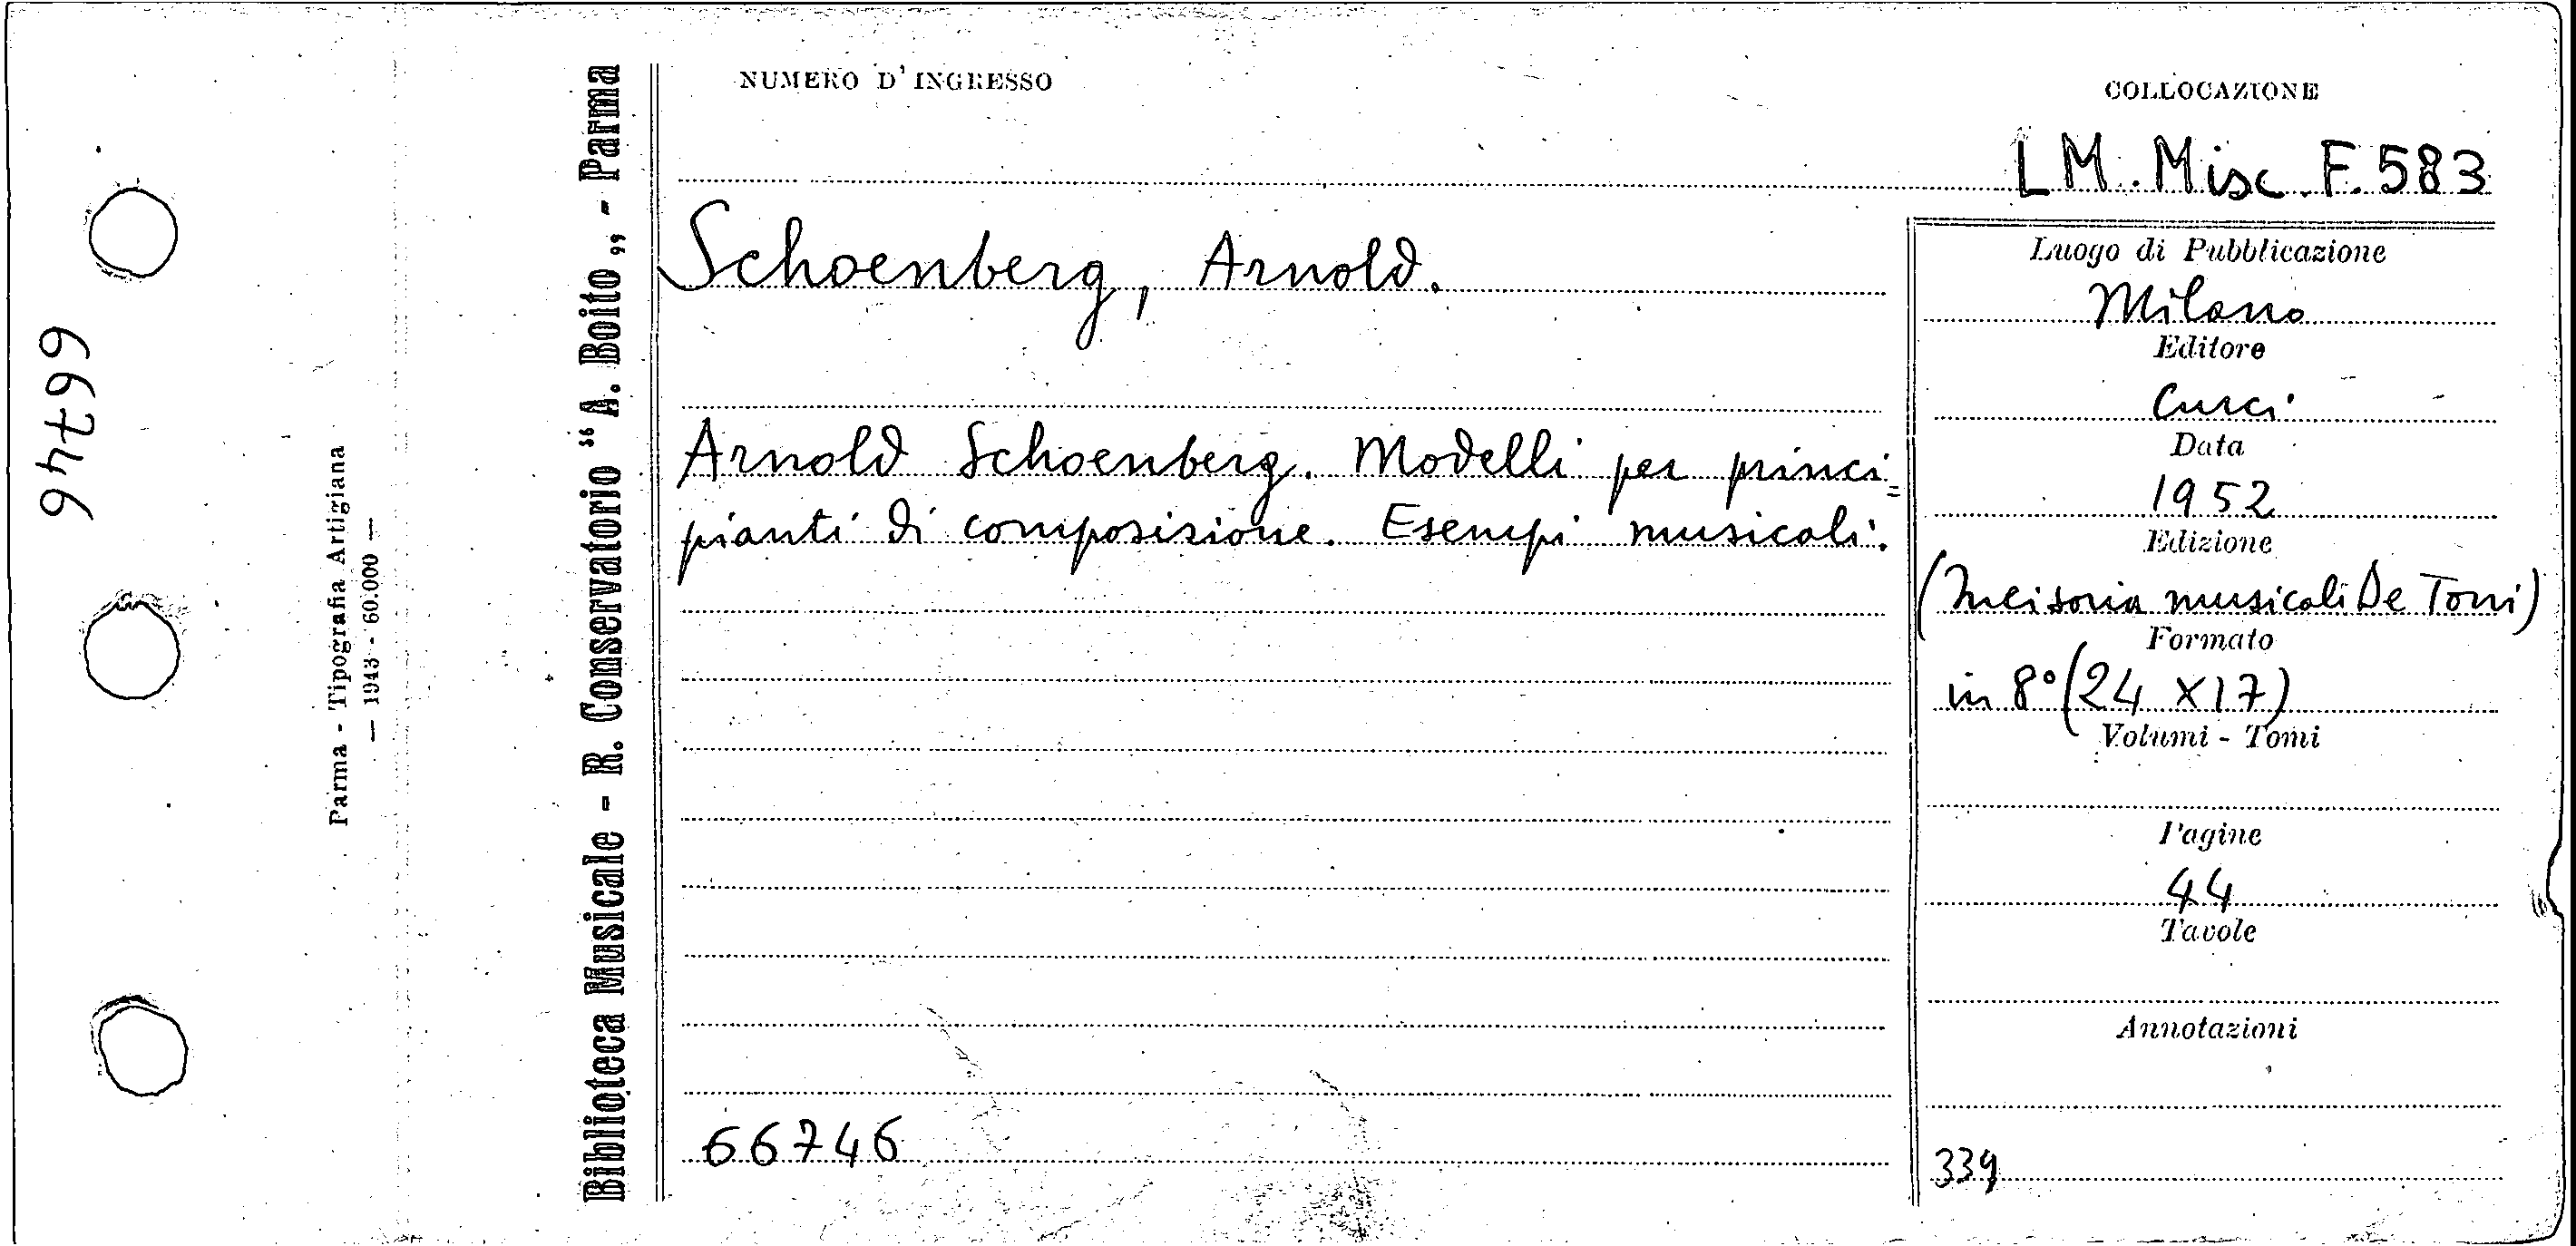 66746
Parma - Tipografia Artigiana
— 1943 - 60.000 —
Biblioteca Musicale - R. Conservatorio “A. Boito„ - Parma
NUMERO D'INGRESSO
COLLOCAZIONE
LM. Misc. F. 583
Schoenberg, Arnold.
Arnold Schoenberg. Modelli per princi=
pianti di composizione. Esempi musicali.
66746
Luogo di Pubblicazione
Milano
Editore
Curci
Data
1952
Edizione
(Incisoria musicali De Toni)
Formato
in 8° (24 X 17)
Volumi - Tomi
Pagine
44
Tavole
Annotazioni
339